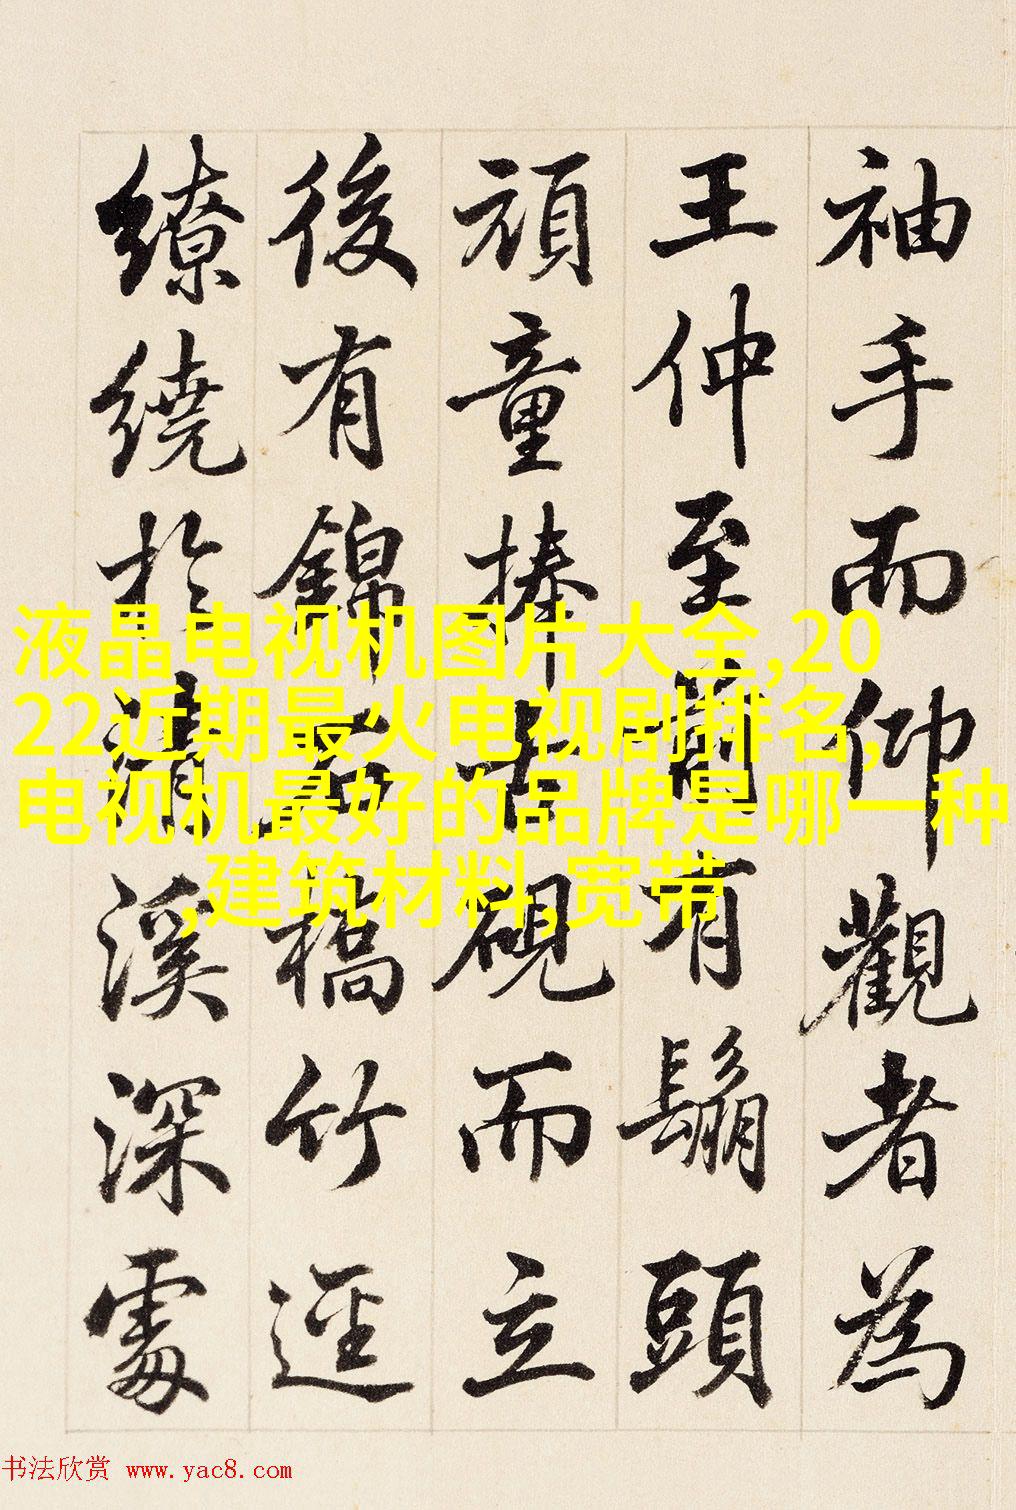 袖手而仰觀者為
王仲至前有鬅頭
頑童捧古硯而立
後有錦石橋竹逕
繚繞於清溪深處
液晶电视机图片大全,20
22近期最火电视剧排名,
电视机最好的品牌是哪一种
,建筑材料,宽带
书法欣赏 www.yac8.com